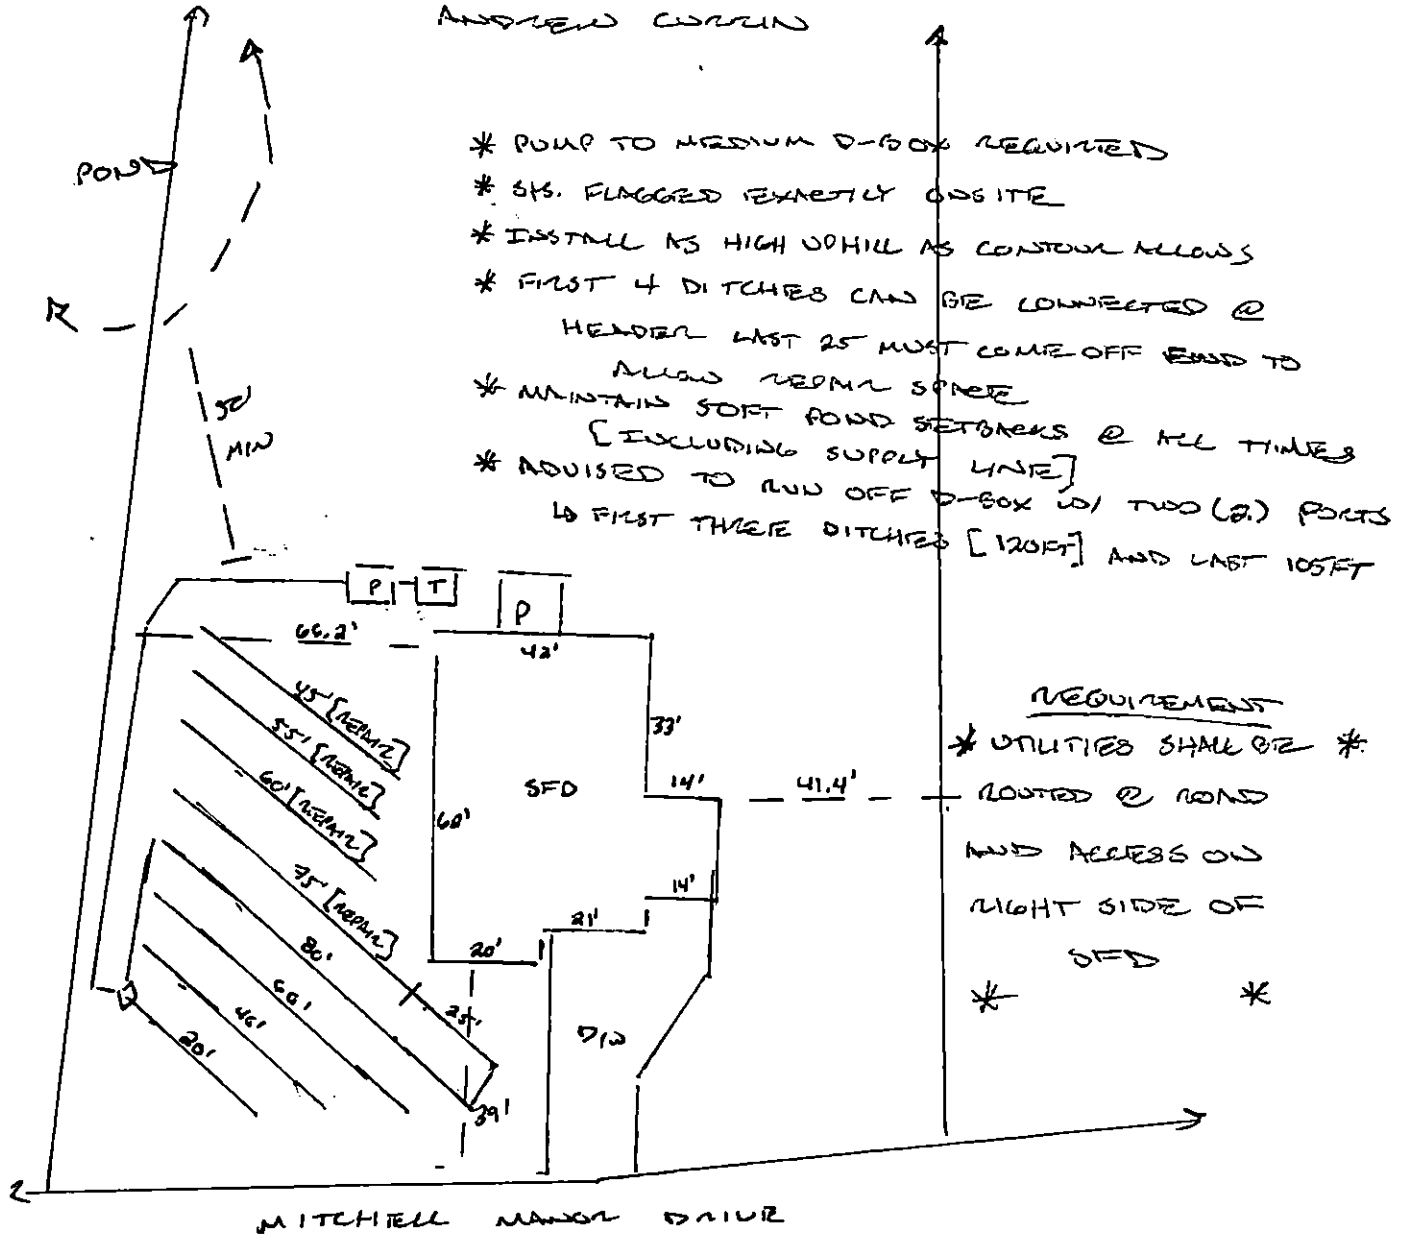 ANDREW CURRIN
POND
* PUMP TO MEDIUM D-BOX REQUIRED
* SYS. FLAGGED EXACTLY ONSITE
* INSTALL AS HIGH UPHILL AS CONTOUR ALLOWS
* FIRST 4 DITCHES CAN BE CONNECTED @
HEADER LAST 25 MUST COME OFF END TO
ALLOW REPAIR SPACE
* MAINTAIN 50FT POND SETBACKS @ ALL TIMES
[INCLUDING SUPPLY LINE]
* ADVISED TO RUN OFF D-BOX W/ TWO (2) PORTS
↳ FIRST THREE DITCHES [120FT] AND LAST 105FT
50'
MIN
P
T
P
66.2'
42'
45' [REPAIR]
55' [REPAIR]
60' [REPAIR]
75' [REPAIR]
80'
25'
46'
20'
SFD
33'
14'
41.4'
14'
21'
20'
D/W
39'
REQUIREMENT
* UTILITIES SHALL BE *
ROUTED @ ROAD
AND ACCESS ON
RIGHT SIDE OF
SFD
* *
MITCHELL MANOR DRIVE